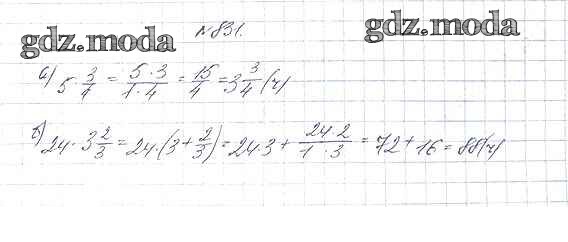 №831.
gdz.moda gdz.moda
а) 5 · 3/4 = 5 · 3/1 · 4 = 15/4 = 3 3/4 (ч)
б) 24 · 3 2/3 = 24 · (3 + 2/3) = 24 · 3 + 24 · 2/1 · 3 = 72 + 16 = 88 (ч)